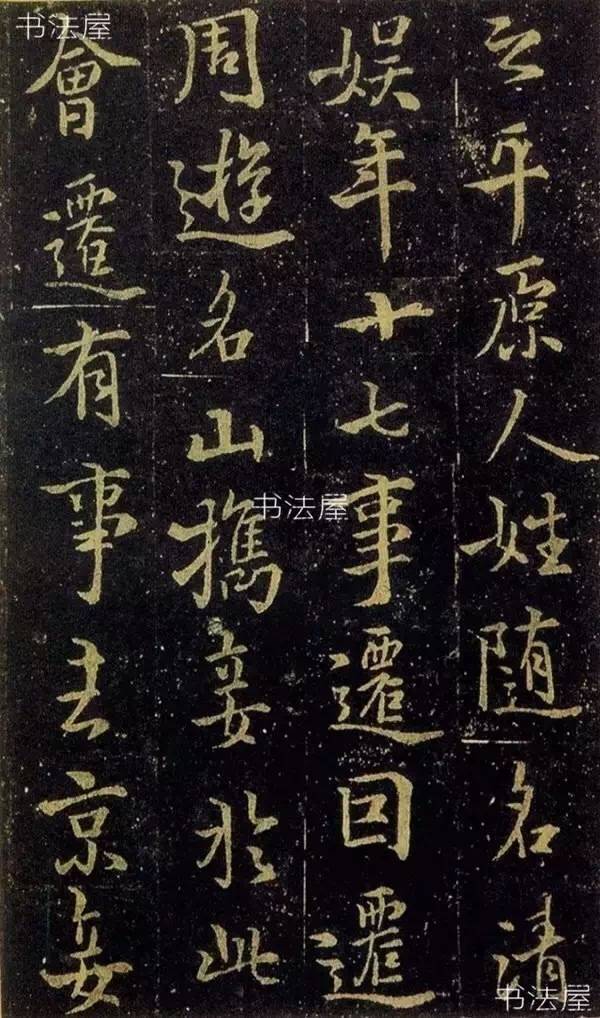 云平原人姓随名清
娱年十七事遷囙遷
周遊名山攜妾於此
會遷有事去京妾
书法屋
书法屋
书法屋